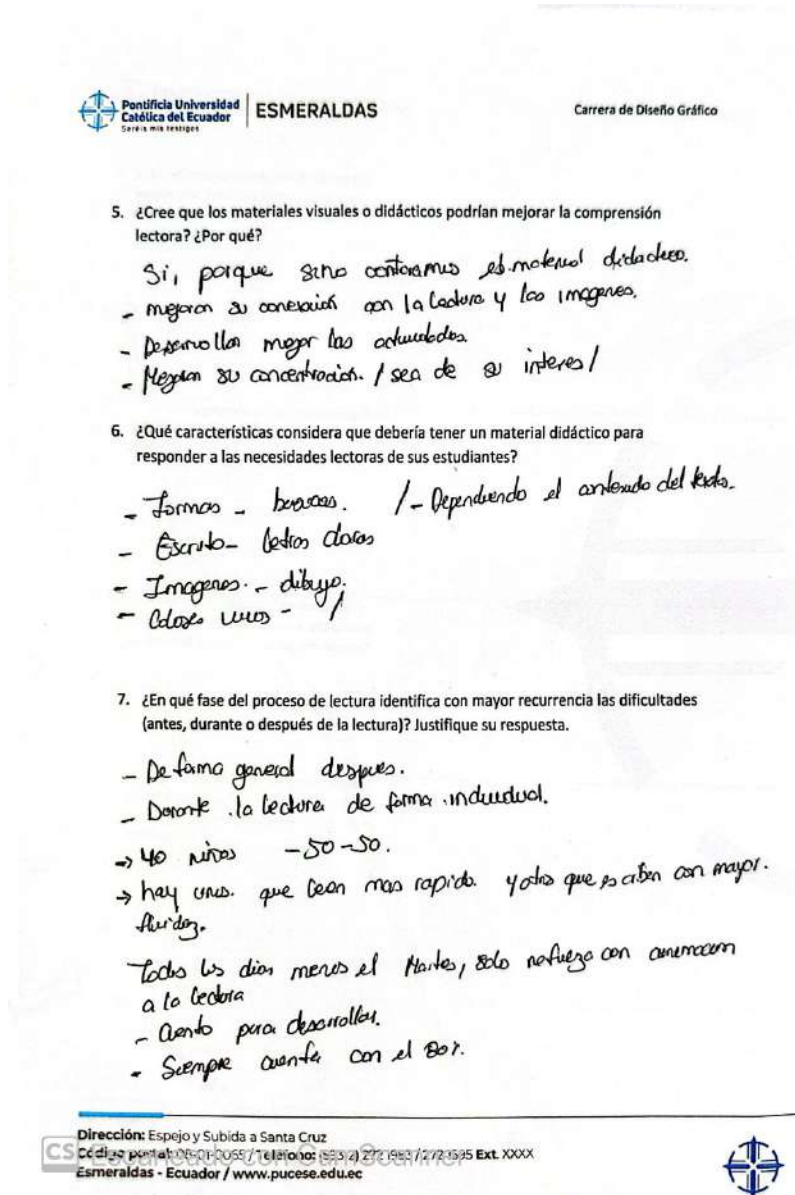 Pontificia Universidad
Católica del Ecuador
Seréis mis testigos
ESMERALDAS
Carrera de Diseño Gráfico
5. ¿Cree que los materiales visuales o didácticos podrían mejorar la comprensión
lectora? ¿Por qué?
Si, porque sino el material didactico.
- mejoran su conexión con la lectura y las imagenes.
- Desarrollan mejor las actividades.
- Mejoran su concentración. / sea de su interes /
6. ¿Qué características considera que debería tener un material didáctico para
responder a las necesidades lectoras de sus estudiantes?
- Formas - / - Dependiendo el contenido del texto.
- Escrito - letras claras
- Imagenes. - dibujo.
- Colores vivos - /
7. ¿En qué fase del proceso de lectura identifica con mayor recurrencia las dificultades
(antes, durante o después de la lectura)? Justifique su respuesta.
- De forma general despues.
- Durante la lectura de forma individual.
→ 40 niños - 50 - 50.
→ hay unos. que leen mas rapido. y otros que escriben con mayor.
fluidez.
Todos los dias menos el Martes, solo refuerzo con
a la lectura
- Cuento para desarrollar.
- Siempre cuenta con el 80%.
Dirección: Espejo y Subida a Santa Cruz
Código postal: Teléfono: Ext. XXXX
CS Escaneado con CamScanner
Esmeraldas - Ecuador / www.pucese.edu.ec